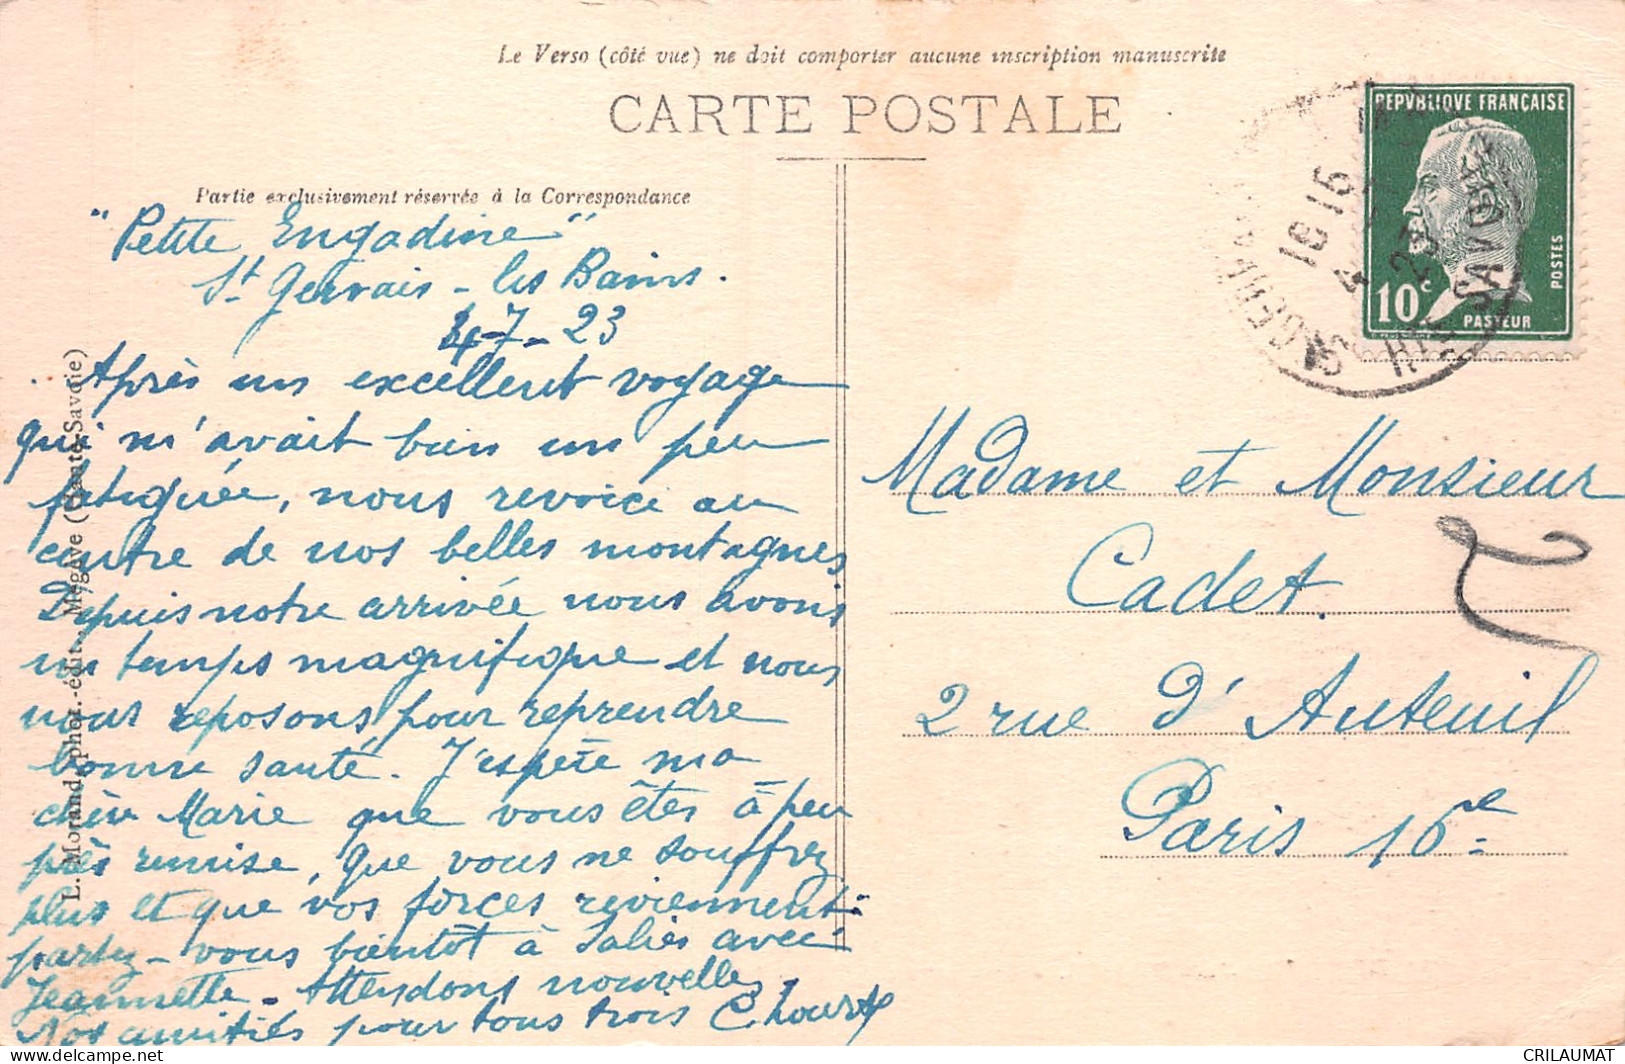 Le Verso (côté vue) ne doit comporter aucune inscription manuscrite
CARTE POSTALE
Partie exclusivement réservée à la Correspondance
"Petite Engadine"
St Gervais - les Bains.
4-7-23
Après un excellent voyage
qui m'avait bien un peu
fatiguée, nous revoici au
centre de nos belles montagnes
Depuis notre arrivée nous avons
un temps magnifique et nous
nous reposons pour reprendre
bonne santé. J'espère ma
chère Marie que vous êtes à peu
près remise, que vous ne souffrez
plus et que vos forces reviennent.
partez-vous bientôt à Salies avec
Jeannette - Attendons nouvelles,
Nos amitiés pour tous trois
L. Morand, phot.-édit., Megève (Haute-Savoie)
REPVBLIQVE FRANÇAISE
POSTES
10c
PASTEUR
18 15
4
23
HTE SAVOIE
Madame et Monsieur
Cadet.
2 rue d'Auteuil
Paris 16e
CRILAUMAT
delcampe.net